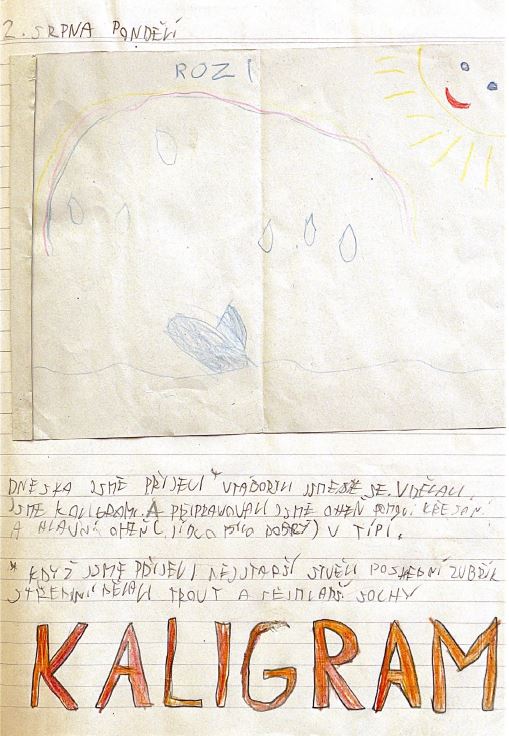 2. SRPNA PONDĚLÍ
ROZI
DNESKA JSME PŘIJELI * UTÁBOŘILI JSME SE. UDĚLALI
JSME KALIGRAM. A PŘIPRAVOVALI JSME OHEŇ POMOCÍ KŘESÁNÍ
A HLAVNÍ OHEŇ ( JÍDLO BYLO DOBRÝ) V TÍPÍ.
* KDYŽ JSME PŘIJELI NEJSTARŠÍ POSLEDNÍ
STŘEDNÍ DĚLALI TROUT A NEJMLADŠÍ SOCHY
KALIGRAM